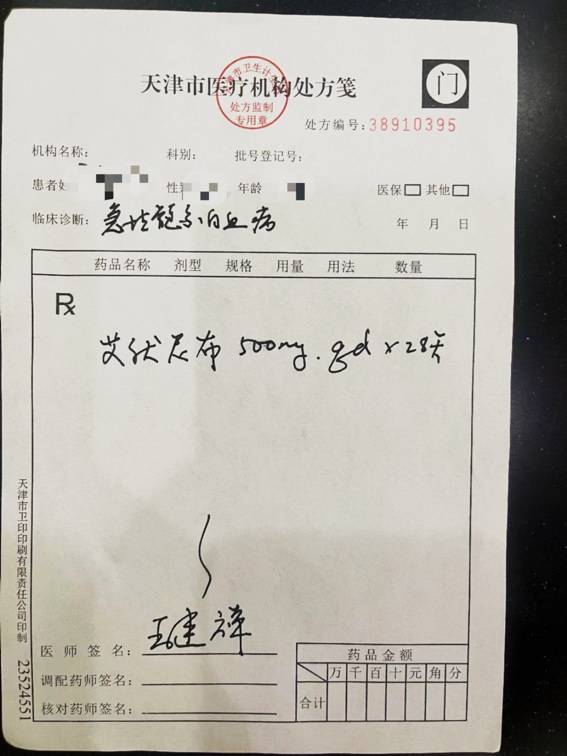 天津市医疗机构处方笺
门
处方监制
专用章
处方编号:38910395
机构名称: 科别: 批号登记号:
患者姓 性 年龄 医保 其他
临床诊断: 急性髓系白血病 年 月 日
药品名称 剂型 规格 用量 用法 数量
Rx
艾伏尼布 500mg. qd x 28天
天津市卫印印刷有限责任公司印制 23524551
医师签名: 王建祥
调配药师签名:
核对药师签名:
药品金额
万 千 百 十 元 角 分
合计